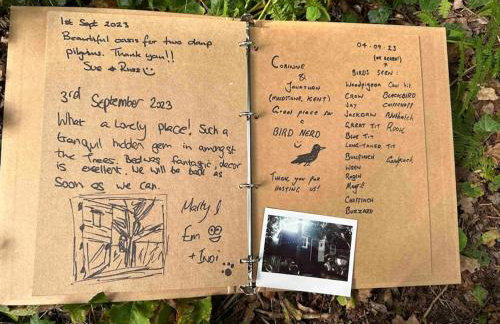 1st Sept 2023
Beautiful oasis for two damp
pilgrims. Thank you!!
Sue & Russ
3rd September 2023
What a lovely place! Such a
tranquil hidden gem in amongst
the trees. Bedws fantastic, decor
is exellent. We will be back as
soon as we can.
Marty J
Em
+ Indi
Corinne
&
Jonathan
(Maidstone, Kent)
Great place for
a
BIRD NERD
Thank you for
hosting us!
04.09.23
BIRDS SEEN
Woodpigeon Coal tit
Crow BLACKBIRD
Jay CHIFFCHAFF
Jackdaw Nuthatch
Great tit Rook
Blue tit
Long-tailed tit
Bullfinch Goldfinch
Wren
Robin
Magpie
Chaffinch
Buzzard